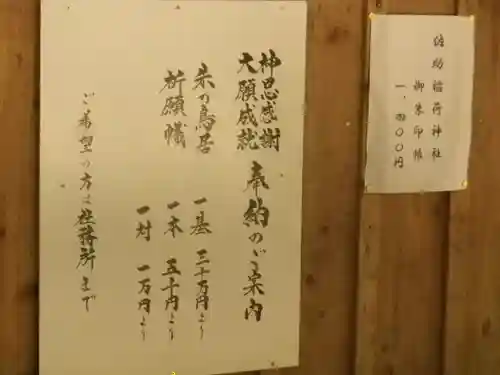 佐助稲荷神社
御朱印帳
一、四〇〇円
神恩感謝
大願成就
奉納のご案内
朱の鳥居 一基 三十万円より
祈願幟 一本 五千円より
一対 一万円より
ご希望の方は社務所まで